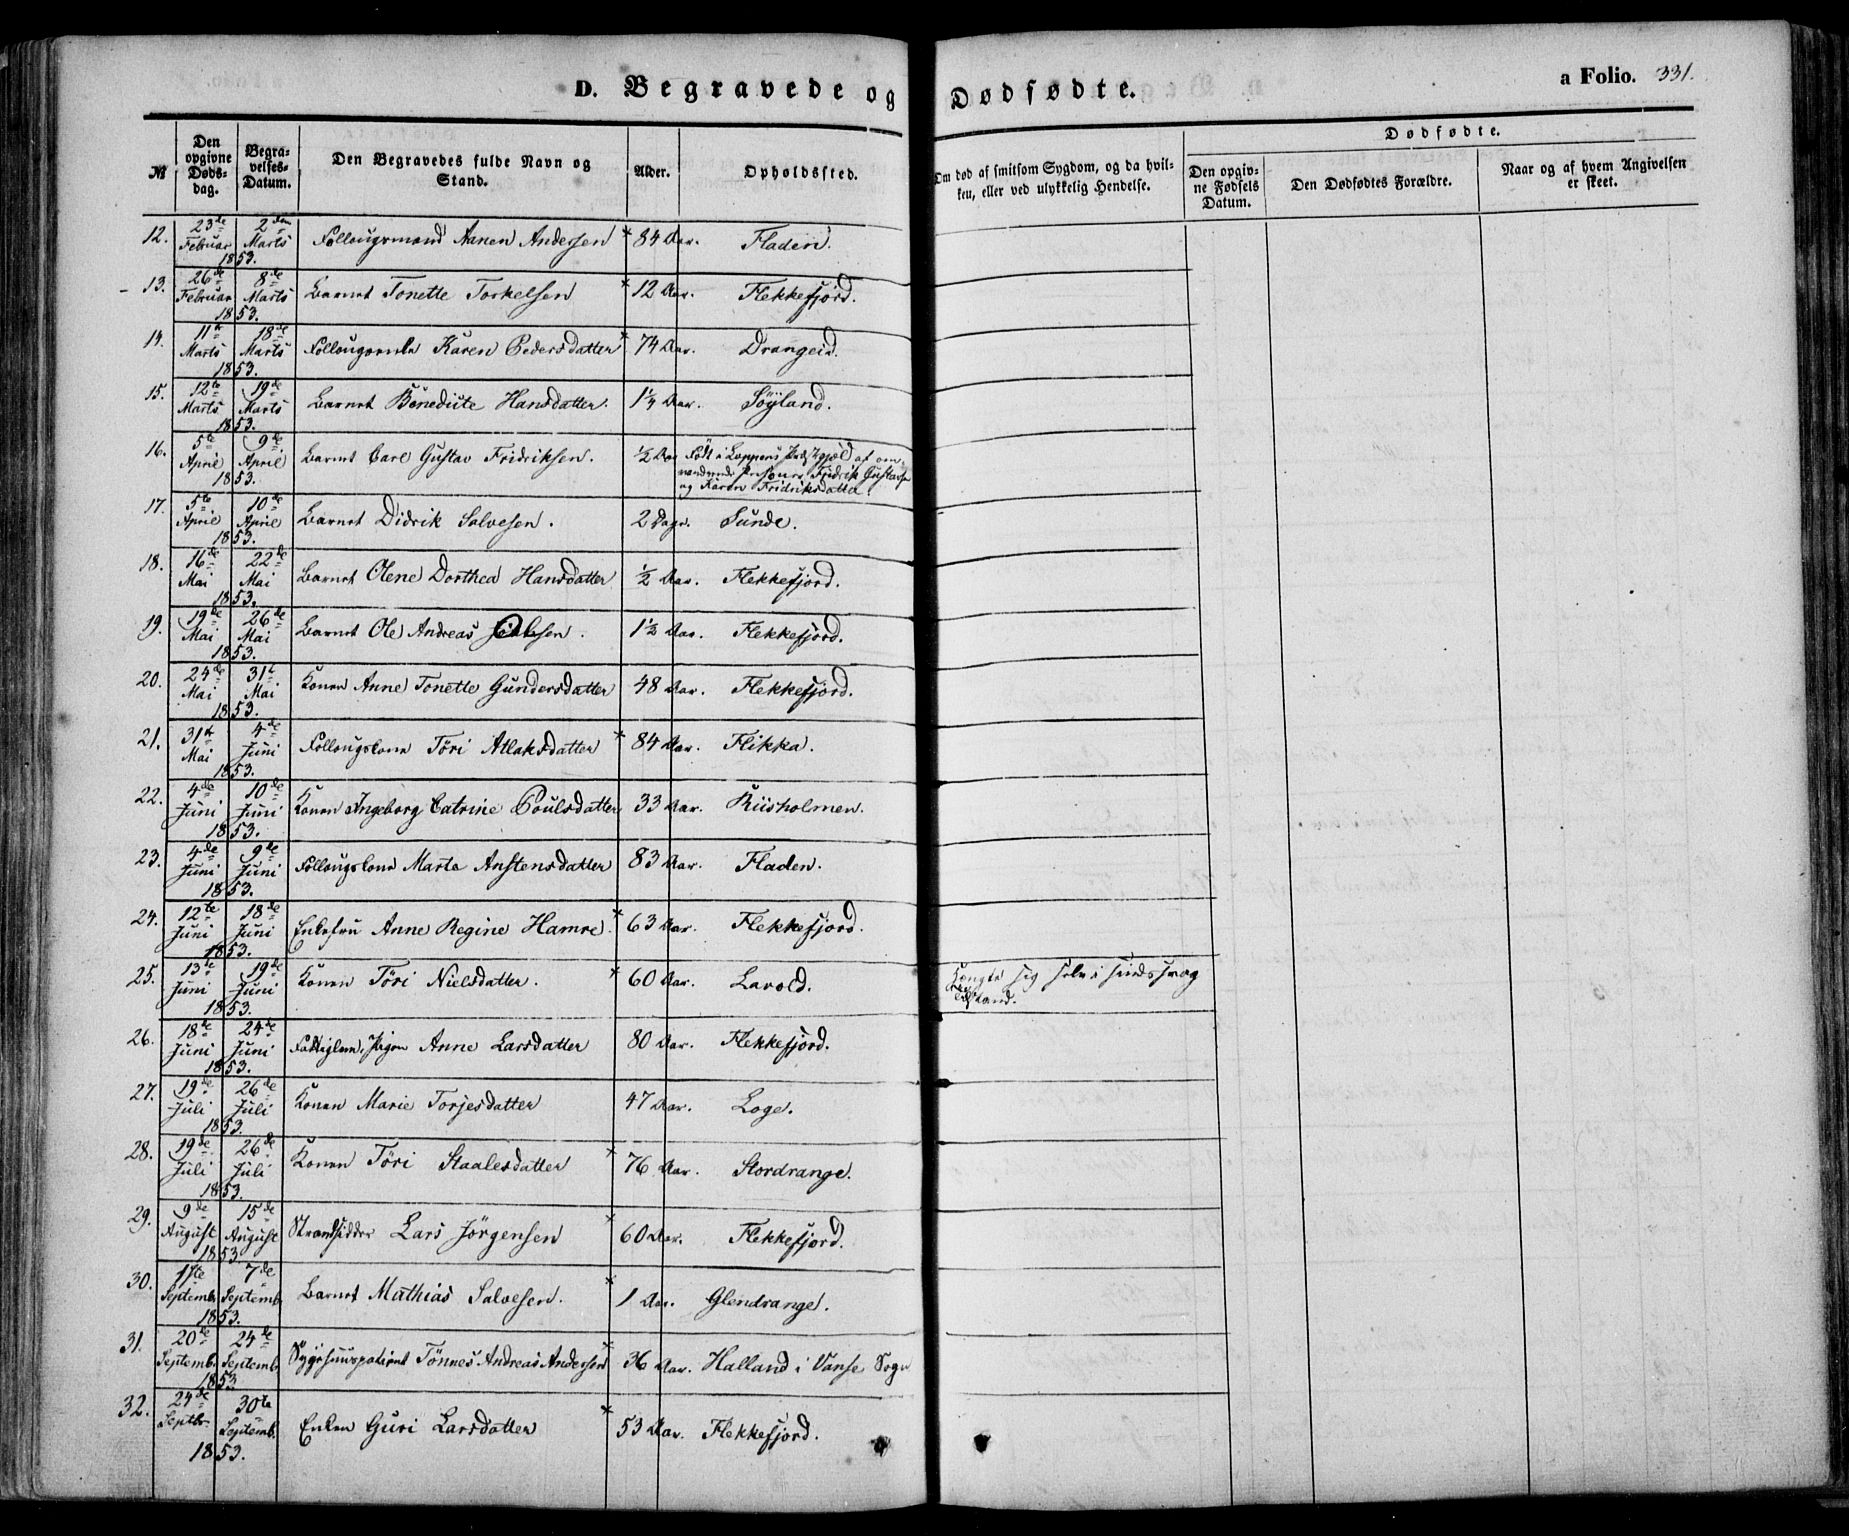 D. Begravede og Dødfødte.
a Folio. 331.
№
Den opgivne Dødsdag.
Begravelses-Datum.
Den Begravedes fulde Navn og Stand.
Alder.
Opholdssted.
Om død af smitsom Sygdom, og da hvilken, eller ved ulykkelig Hendelse.
Dødfødte.
Den opgivne Fødsels Datum.
Den Dødfødtes Forældre.
Naar og af hvem Angivelsen er skeet.
12. 23de Februar 2den Marts 1853. Follougsmand Aanen Andersen × 84 Aar. Fladen.
13. 26de Februar 8de Marts 1853. Barnet Tonette Torkelsen × 12 Aar. Flekkefjord.
14. 11te Marts 18de Marts 1853. Karen Pedersdatter × 74 Aar. Drangeid.
15. 12te Marts 19de Marts 1853. Barnet Benedicte Hansdatter. 1¼ Aar. Söyland.
16. 5te April 9de April 1853. Barnet Carl Gustav Fridriksen. ½ Aar Født i Præstegjæld af om-
vandrende Personer Fridrik Gustavsen
og Karen Fridriksdatter.
17. 5te April 10de April 1853. Barnet Didrik Salvesen. 2 Dage. Sunde.
18. 16de Mai 22de Mai 1853. Barnet Olene Dorthea Hansdatter ½ Aar. Flekkefjord.
19. 19de Mai 26de Mai 1853. Barnet Ole Andreas 1½ Aar. Flekkefjord.
20. 24de Mai 31te Mai 1853. Konen Anne Tonette Gundersdatter 48 Aar. Flekkefjord.
21. 31te Mai 4de Juni 1853. Follougskone Töri Atlaksdatter × 84 Aar. Flikka.
22. 4de Juni 10de Juni 1853. Konen Ingeborg Catrine Poulsdatter 33 Aar. Riisholmen.
23. 4de Juni 9de Juni 1853. Follougskone Marta Anstensdatter 83 Aar. Fladen.
24. 12te Juni 18de Juni 1853. Enkefru Anne Regine Hamre. × 63 Aar. Flekkefjord.
25. 13de Juni 19de Juni 1853. Konen Töri Nielsdatter. × 60 Aar. Lavold. Hængte sig selv i sindssvag
Tilstand.
26. 18de Juni 24de Juni 1853. Fattiglem, Pigen Anne Larsdatter 80 Aar. Flekkefjord.
27. 19de Juli 26de Juli 1853. Konen Marie Torjesdatter 47 Aar. Loge.
28. 19de Juli 26de Juli 1853. Konen Töri Staalesdatter × 76 Aar. Stordrange.
29. 9de August 15de August 1853. Strandsidder Lars Jörgensen × 60 Aar. Flekkefjord.
30. 1ste Septemb. 7de Septemb. 1853. Barnet Mathias Salvesen. × 1 Aar. Glendrange.
31. 20de Septemb. 24de Septemb. 1853 Sygehuuspatient Tönnes Andreas Andersen × 36 Aar. Halland i Vanse Sogn
32. 24de Septbr. 30te Septemb. 1853. Enken Guri Larsdatter × 53 Aar. Flekkefjord.